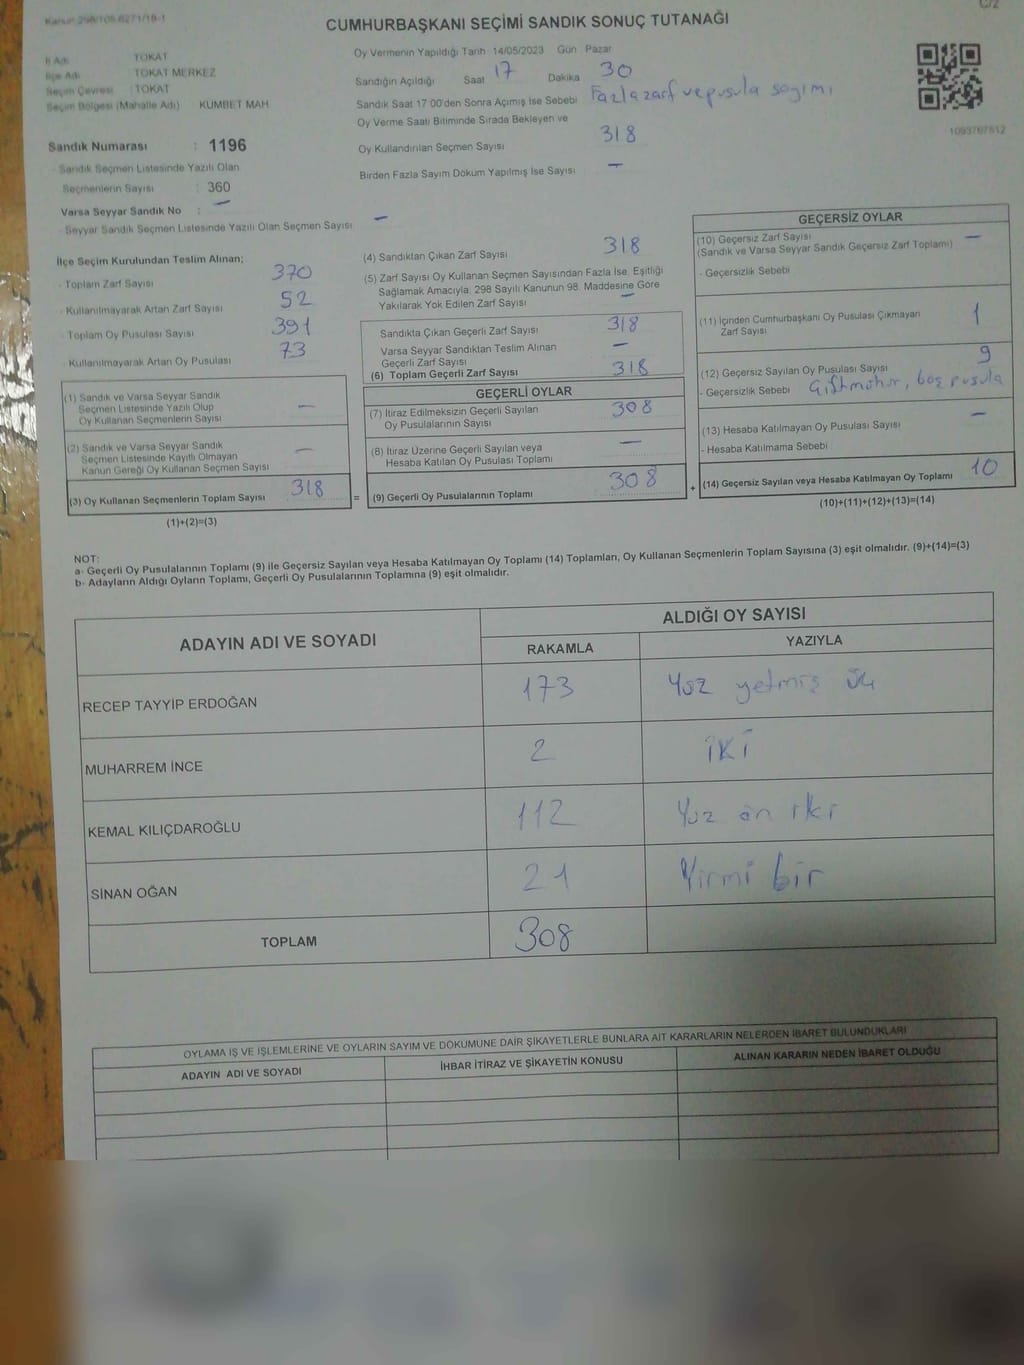 C/2
CUMHURBAŞKANI SEÇİMİ SANDIK SONUÇ TUTANAĞI
İl Adı : TOKAT
İlçe Adı : TOKAT MERKEZ
Seçim Çevresi : TOKAT
Seçim Bölgesi (Mahalle Adı) KUMBET MAH
Sandık Numarası : 1196
- Sandık Seçmen Listesinde Yazılı Olan
Seçmenlerin Sayısı : 360
Varsa Seyyar Sandık No : -
- Seyyar Sandık Seçmen Listesinde Yazılı Olan Seçmen Sayısı -
Oy Vermenin Yapıldığı Tarih 14/05/2023 Gün Pazar
Sandığın Açıldığı Saat 17 Dakika 30
Sandık Saat 17 00'den Sonra Açımış İse Sebebi Fazla zarf ve pusula sayımı
Oy Verme Saati Bitiminde Sırada Bekleyen ve
Oy Kullandırılan Seçmen Sayısı 318
Birden Fazla Sayım Dokum Yapılmış İse Sayısı -
1093767612
İlçe Seçim Kurulundan Teslim Alınan;
- Toplam Zarf Sayısı 370
- Kullanılmayarak Artan Zarf Sayısı 52
- Toplam Oy Pusulası Sayısı 391
- Kullanılmayarak Artan Oy Pusulası 73
(1) Sandık ve Varsa Seyyar Sandık
Seçmen Listesinde Yazılı Olup
Oy Kullanan Seçmenlerin Sayısı -
(2) Sandık ve Varsa Seyyar Sandık
Seçmen Listesinde Kayıtlı Olmayan
Kanun Gereği Oy Kullanan Seçmen Sayısı -
(3) Oy Kullanan Seçmenlerin Toplam Sayısı 318 =
(1)+(2)=(3)
(4) Sandıktan Çıkan Zarf Sayısı 318
(5) Zarf Sayısı Oy Kullanan Seçmen Sayısından Fazla İse, Eşitliği
Sağlamak Amacıyla, 298 Sayılı Kanunun 98. Maddesine Göre
Yakılarak Yok Edilen Zarf Sayısı -
Sandıkta Çıkan Geçerli Zarf Sayısı 318
Varsa Seyyar Sandıktan Teslim Alınan
Geçerli Zarf Sayısı -
(6) Toplam Geçerli Zarf Sayısı 318
GEÇERLİ OYLAR
(7) İtiraz Edilmeksizin Geçerli Sayılan
Oy Pusulalarının Sayısı 308
(8) İtiraz Üzerine Geçerli Sayılan veya
Hesaba Katılan Oy Pusulası Toplamı -
(9) Geçerli Oy Pusulalarının Toplamı 308 +
GEÇERSİZ OYLAR
(10) Geçersiz Zarf Sayısı
(Sandık ve Varsa Seyyar Sandık Geçersiz Zarf Toplamı) -
- Geçersizlik Sebebi
(11) İçinden Cumhurbaşkanı Oy Pusulası Çıkmayan
Zarf Sayısı 1
(12) Geçersiz Sayılan Oy Pusulası Sayısı 9
- Geçersizlik Sebebi Çift mühür, boş pusula
(13) Hesaba Katılmayan Oy Pusulası Sayısı -
- Hesaba Katılmama Sebebi
(14) Geçersiz Sayılan veya Hesaba Katılmayan Oy Toplamı 10
(10)+(11)+(12)+(13)=(14)
NOT:
a- Geçerli Oy Pusulalarının Toplamı (9) ile Geçersiz Sayılan veya Hesaba Katılmayan Oy Toplamı (14) Toplamları, Oy Kullanan Seçmenlerin Toplam Sayısına (3) eşit olmalıdır. (9)+(14)=(3)
b- Adayların Aldığı Oyların Toplamı, Geçerli Oy Pusulalarının Toplamına (9) eşit olmalıdır.
ADAYIN ADI VE SOYADI ALDIĞI OY SAYISI
RAKAMLA YAZIYLA
RECEP TAYYİP ERDOĞAN 173 Yüz yetmiş üç
MUHARREM İNCE 2 iki
KEMAL KILIÇDAROĞLU 112 Yüz on iki
SİNAN OĞAN 21 Yirmi bir
TOPLAM 308
OYLAMA İŞ VE İŞLEMLERİNE VE OYLARIN SAYIM VE DÖKÜMÜNE DAİR ŞİKAYETLERLE BUNLARA AİT KARARLARIN NELERDEN İBARET BULUNDUKLARI
ADAYIN ADI VE SOYADI İHBAR İTİRAZ VE ŞİKAYETİN KONUSU ALINAN KARARIN NEDEN İBARET OLDUĞU